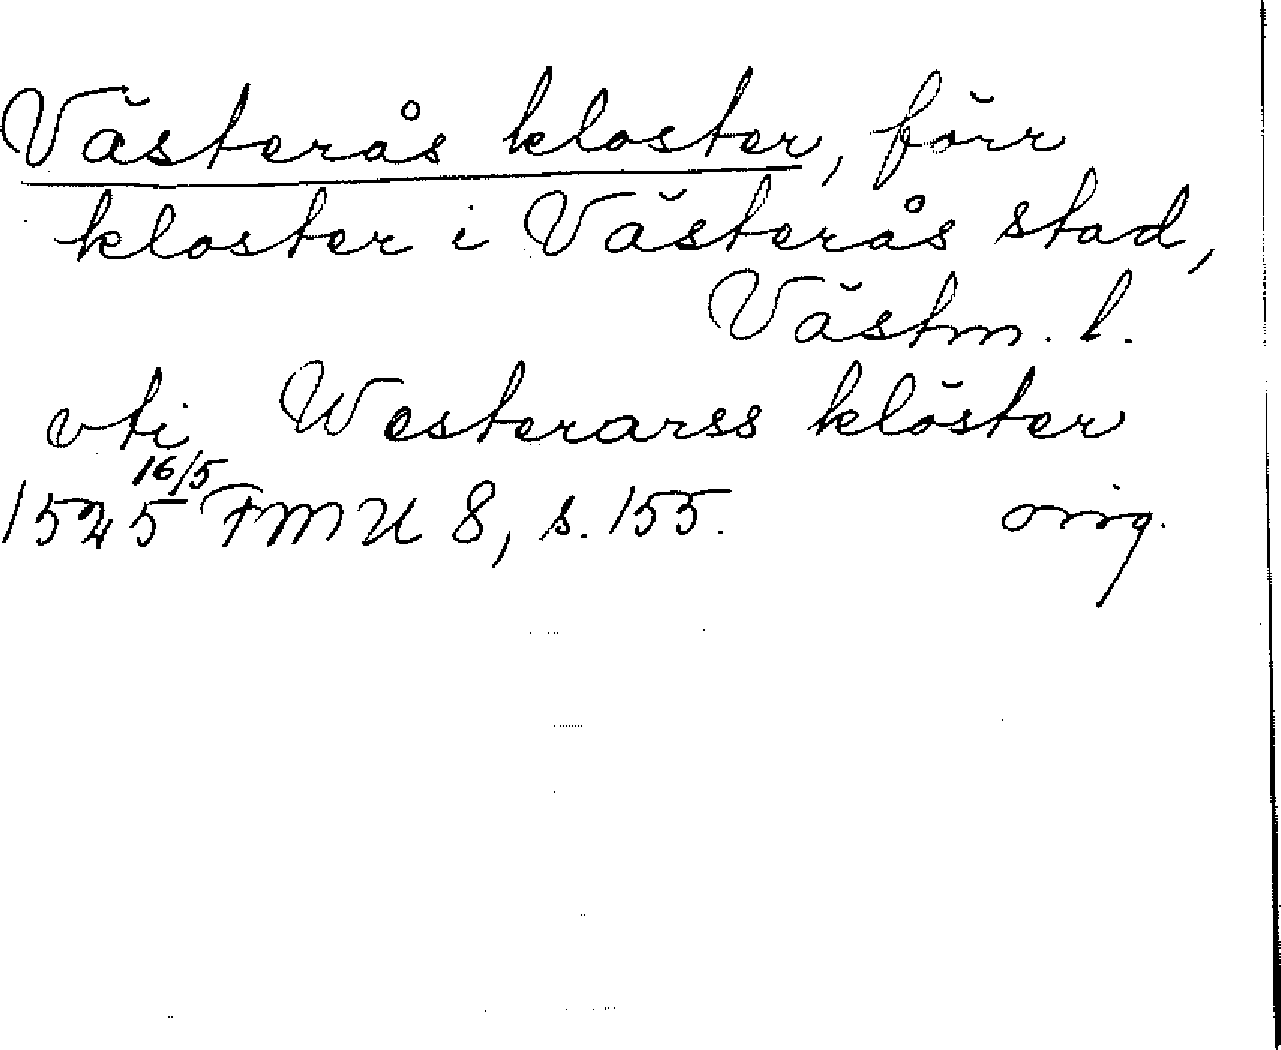 Västerås kloster, förr
kloster i Västerås stad,
Västm. l.
vti Westerarss klöster
1545 16/5 FMU 8, s. 155. orig.